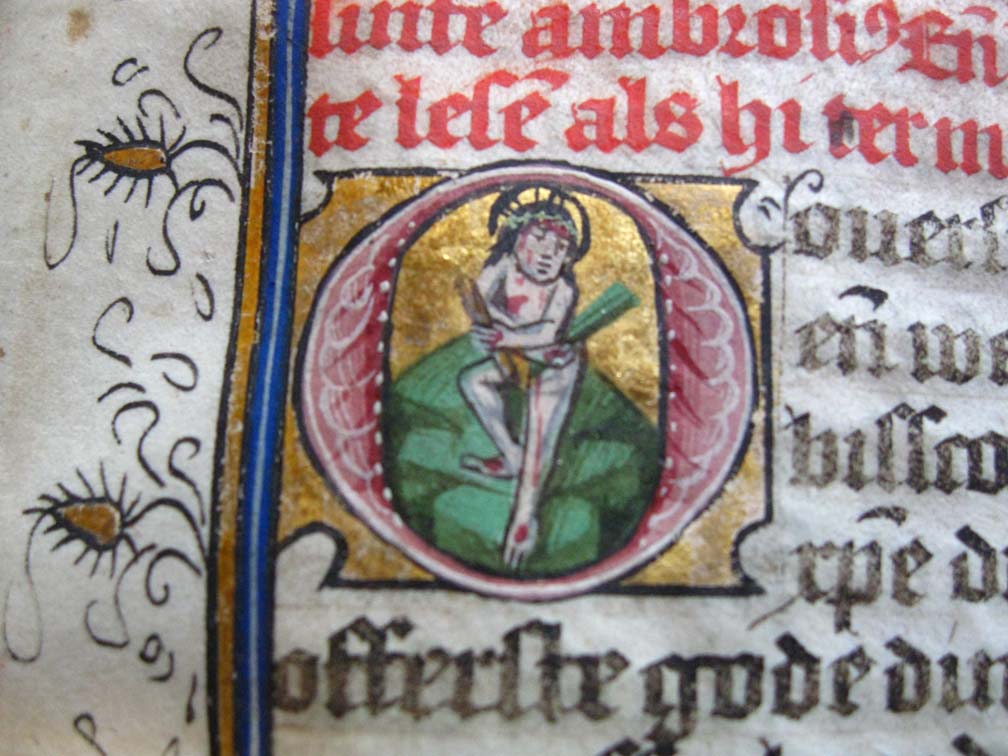 sinte ambrosiꝯ En̄
te lesē als hi ter m
Ouers
en̄ we
bissco
rpē d
offerste gode din